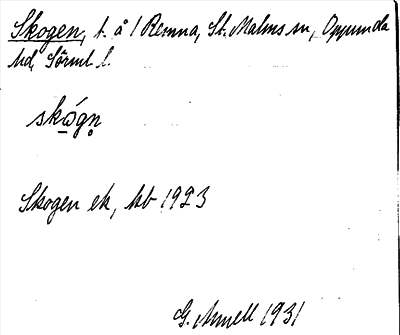 Skogen, t. å 1 Remna, St. Malms sn, Oppunda
hd, Sörml. l.
skógn̥
Skogen ek, hb 1923
G. Annell 1931